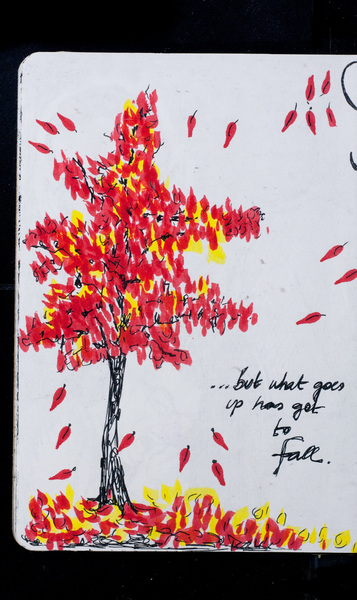 ...but what goes
up has got
to
fall.